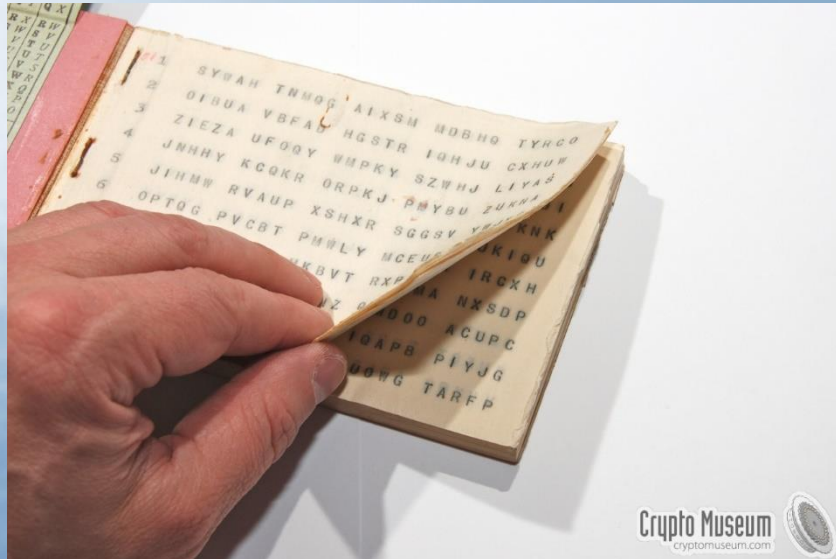 1 SYWAH TNMOG AIXSM MDBHQ TYHCO
2 OIBUA VBFAD HGSTR IQHJU CXHUW
3 ZIEZA UFOQY WMPKY SZWHJ LIYAS
4 JNHHY KCQKR ORPKJ PMYBU
5 JIHMW RVAUP XSHXR SGGSV
6 OPTOG PVCBT PMWLY
KNK
UKIQU
IRCXH
NXSDP
ACUPC
IQAPB PIYJG
TARFP
Crypto Museum
cryptomuseum.com